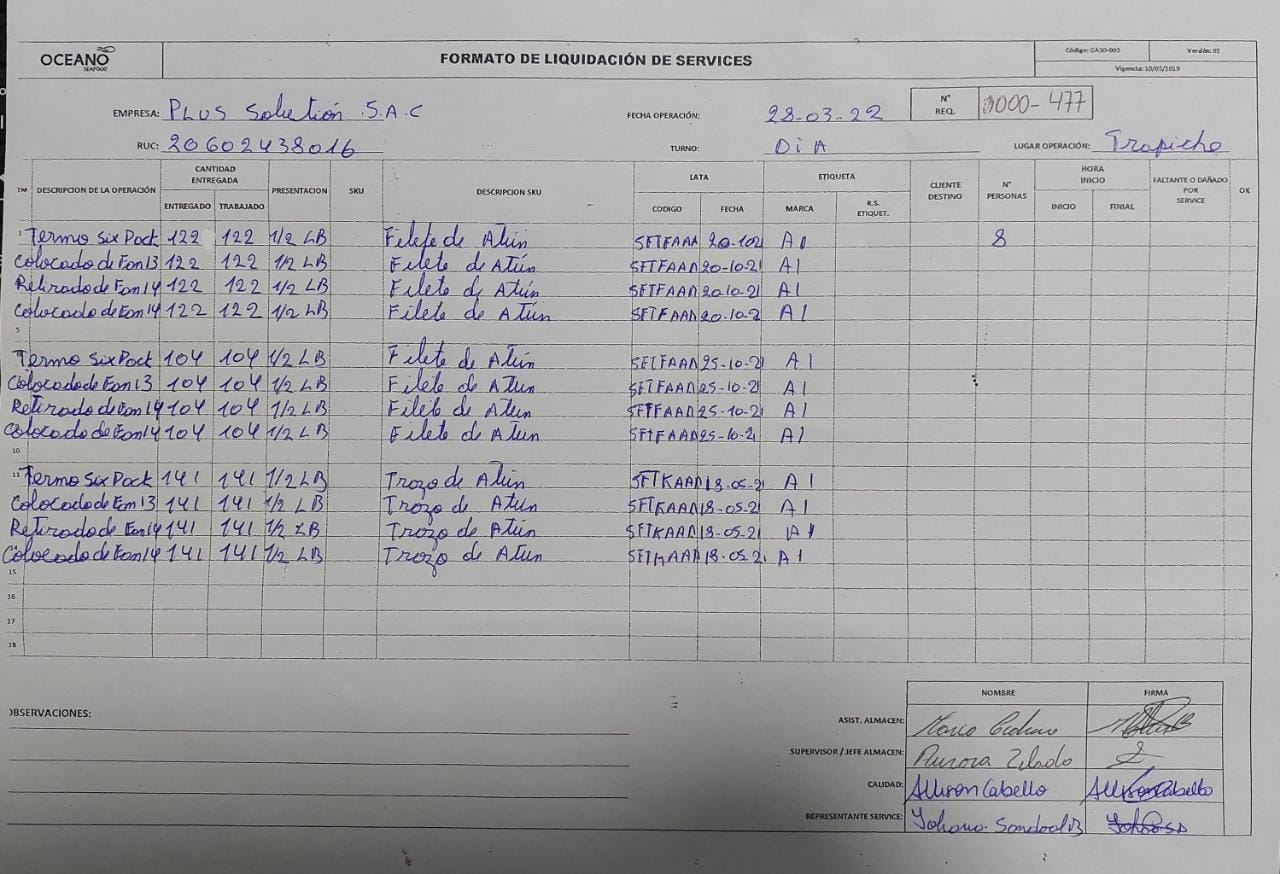 OCEANO SEAFOOD
FORMATO DE LIQUIDACIÓN DE SERVICES
Código: GASO-005 Versión: 02
Vigencia: 10/05/2019
EMPRESA: PLUS Solutión S.A.C FECHA OPERACIÓN: 28-03-22 N° REQ. 0000-477
RUC: 20602438016 TURNO: DiA LUGAR OPERACIÓN: Trapiche
ITM DESCRIPCION DE LA OPERACIÓN CANTIDAD ENTREGADA PRESENTACION SKU DESCRIPCION SKU LATA ETIQUETA CLIENTE DESTINO N° PERSONAS HORA INICIO FALTANTE O DAÑADO POR SERVICE OK
ENTREGADO TRABAJADO CODIGO FECHA MARCA R.S. ETIQUET. INICIO FINIAL
1 Termo Six Pack 122 122 1/2 LB Filete de Atún SFTFAAA 20-102 A1 8
Colocado de Fon 13 122 122 1/2 LB Filete de Atún SFTFAAN 20-10-21 A1
Retirado de Fon 14 122 122 1/2 LB Filete de Atún SFTFAAN 20-10-21 A1
Colocado de Fon 14 122 122 1/2 LB Filete de Atún SFTFAAN 20-10-2 A1
5
Termo Six Pack 104 104 1/2 LB Filete de Atún SFTFAAN 25-10-21 A1
Colocado de Fon 13 104 104 1/2 LB Filete de Atún SFTFAAN 25-10-21 A1
Retirado de Fon 14 104 104 1/2 LB Filete de Atun SFTFAAN 25-10-21 A1
Colocado de Fon 14 104 104 1/2 LB Filete de Atun SFTFAAN 25-10-21 A1
10
11 Termo Six Pack 141 141 1/2 LB Trozo de Atún SFTKAAN 18-05-21 A1
Colocado de Fon 13 141 141 1/2 LB Trozo de Atún SFTKAAN 18-05-21 A1
Retirado de Fon 14 141 141 1/2 LB Trozo de Atún SFTKAAN 18-05-21 A1
Colocado de Fon 14 141 141 1/2 LB Trozo de Atun SFTKAAN 18-05-2 A1
15
16
17
18
NOMBRE FIRMA
OBSERVACIONES:
ASIST. ALMACEN: Marco Cedeno
SUPERVISOR / JEFE ALMACEN: Aurora
CALIDAD: Allison Cabello Allison Cabello
REPRESENTANTE SERVICE: